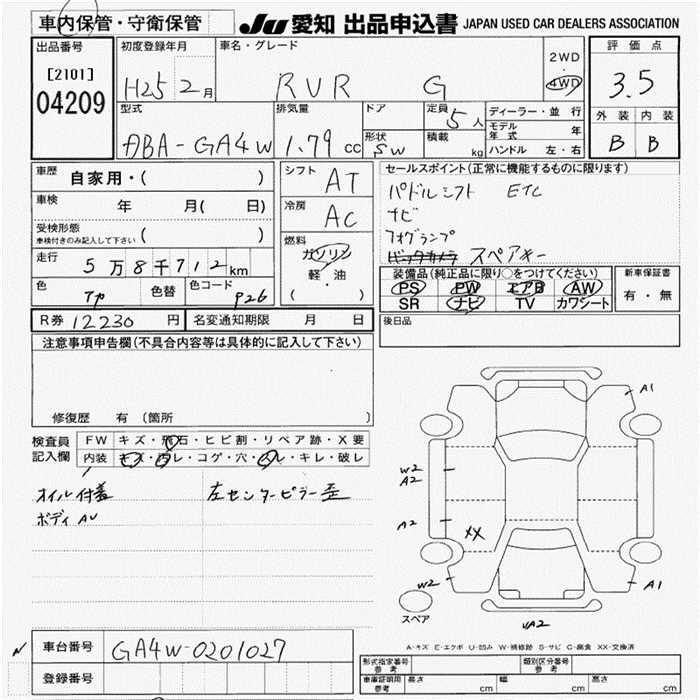 車内保管・守衛保管
JU 愛知 出品申込書 JAPAN USED CAR DEALERS ASSOCIATION
出品番号 初度登録年月 車名・グレード 2WD・4WD 評価点
[2101] 04209 H25 2月 RVR G 3.5
型式 排気量 ドア 定員 5人 ディーラー・並行 外装 内装
ABA-GA4W 1.79 cc 形状 SW 積載 kg モデル年式 年 B B
ハンドル 左・右
車歴 自家用・( ) シフト AT セールスポイント(正常に機能するものに限ります)
車検 年 月( 日) 冷房 AC パドルシフト ETC
ナビ
受検形態 車検付きのみ記入して下さい ( ) 燃料 ガソリン フォグランプ
走行 5万8千712km 軽・油 ビュックカメラ スペアキー
( ・ ) 装備品(純正品に限り○をつけてください) 新車保証書
色 色替 色コード P26 PS PW エアB AW 有・無
SR ナビ TV カワシート
R券 12230 円 名変通知期限 月 日 後日品
注意事項申告欄(不具合内容等は具体的に記入して下さい)
修復歴 有 (箇所
検査員 記入欄 FW キズ・飛石・ヒビ割・リペア跡・X要
内装 キズ・汚レ・コゲ・穴・スレ・キレ・破レ
オイル付着 左センターピラー歪
ボディAU
A1
W2 A2
A2 XX
W2 A1
スペア
A2
A-キズ E-エクボ U-凹み W-補修跡 S-サビ C-腐食 XX-交換済
車台番号 GA4W-0201027
登録番号
形式指定番号 参考 類別区分番号 参考
車庫証明用 参考 長さ cm 幅 cm 高さ cm